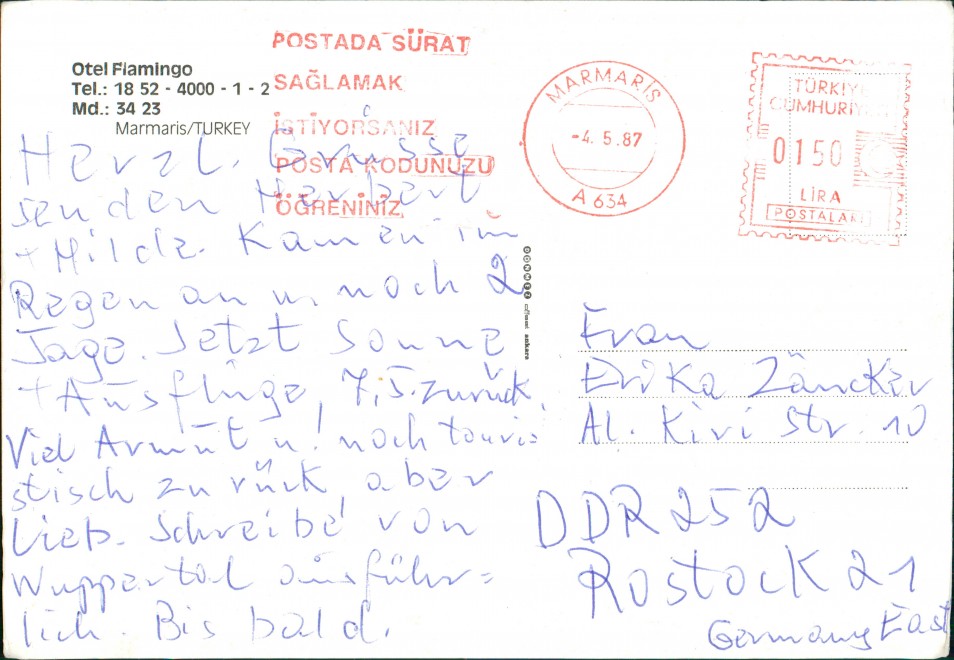 Otel Flamingo
Tel.: 18 52 - 4000 - 1 - 2
Md.: 34 23
Marmaris/TURKEY
POSTADA SÜRAT
SAĞLAMAK
İSTİYORSANIZ
POSTA KODUNUZU
ÖĞRENİNİZ
MARMARİS
-4.5.87
A 634
TÜRKİYE
CUMHURİYETİ
0150
LİRA
POSTALARI
Herzl. Grüsse
senden Herbert
+ Hilde. Kamen im
Regen an u. noch 2
Tage. Jetzt Sonne
+ Ausflüge, 7.5. zurück.
Viel Armut u. noch touri=
stisch zurück, aber
lieb. Schreibe von
Wuppertal ausführ=
lich. Bis bald.
offset ankara
Frau
Erika Zäncker
Al. Kivi Str. 10
DDR 252
Rostock 21
Germany East